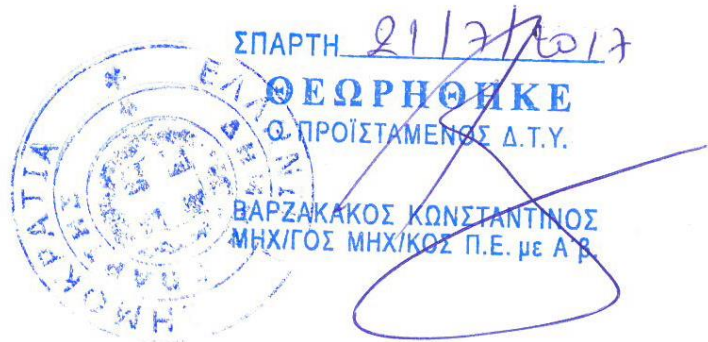 ΣΠΑΡΤΗ 21/7/2017
ΘΕΩΡΗΘΗΚΕ
Ο ΠΡΟΪΣΤΑΜΕΝΟΣ Δ.Τ.Υ.
ΒΑΡΖΑΚΑΚΟΣ ΚΩΝΣΤΑΝΤΙΝΟΣ
ΜΗΧ/ΓΟΣ ΜΗΧ/ΚΟΣ Π.Ε. με Α΄β.